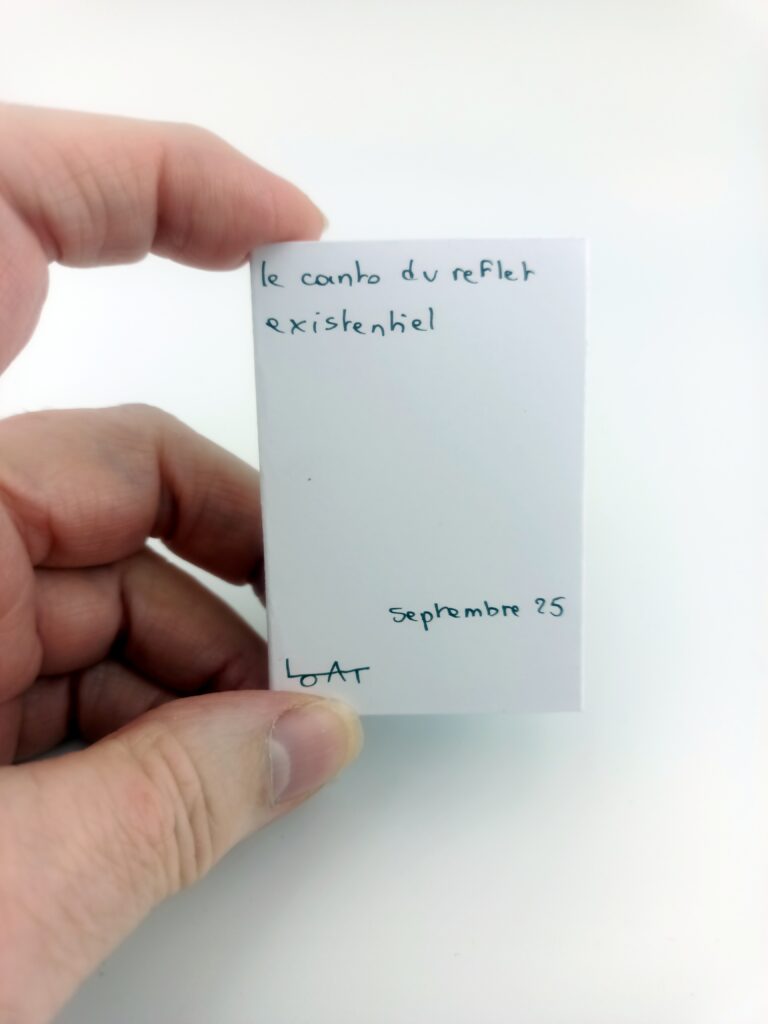 le canto du reflet
existentiel
septembre 25
LOAT